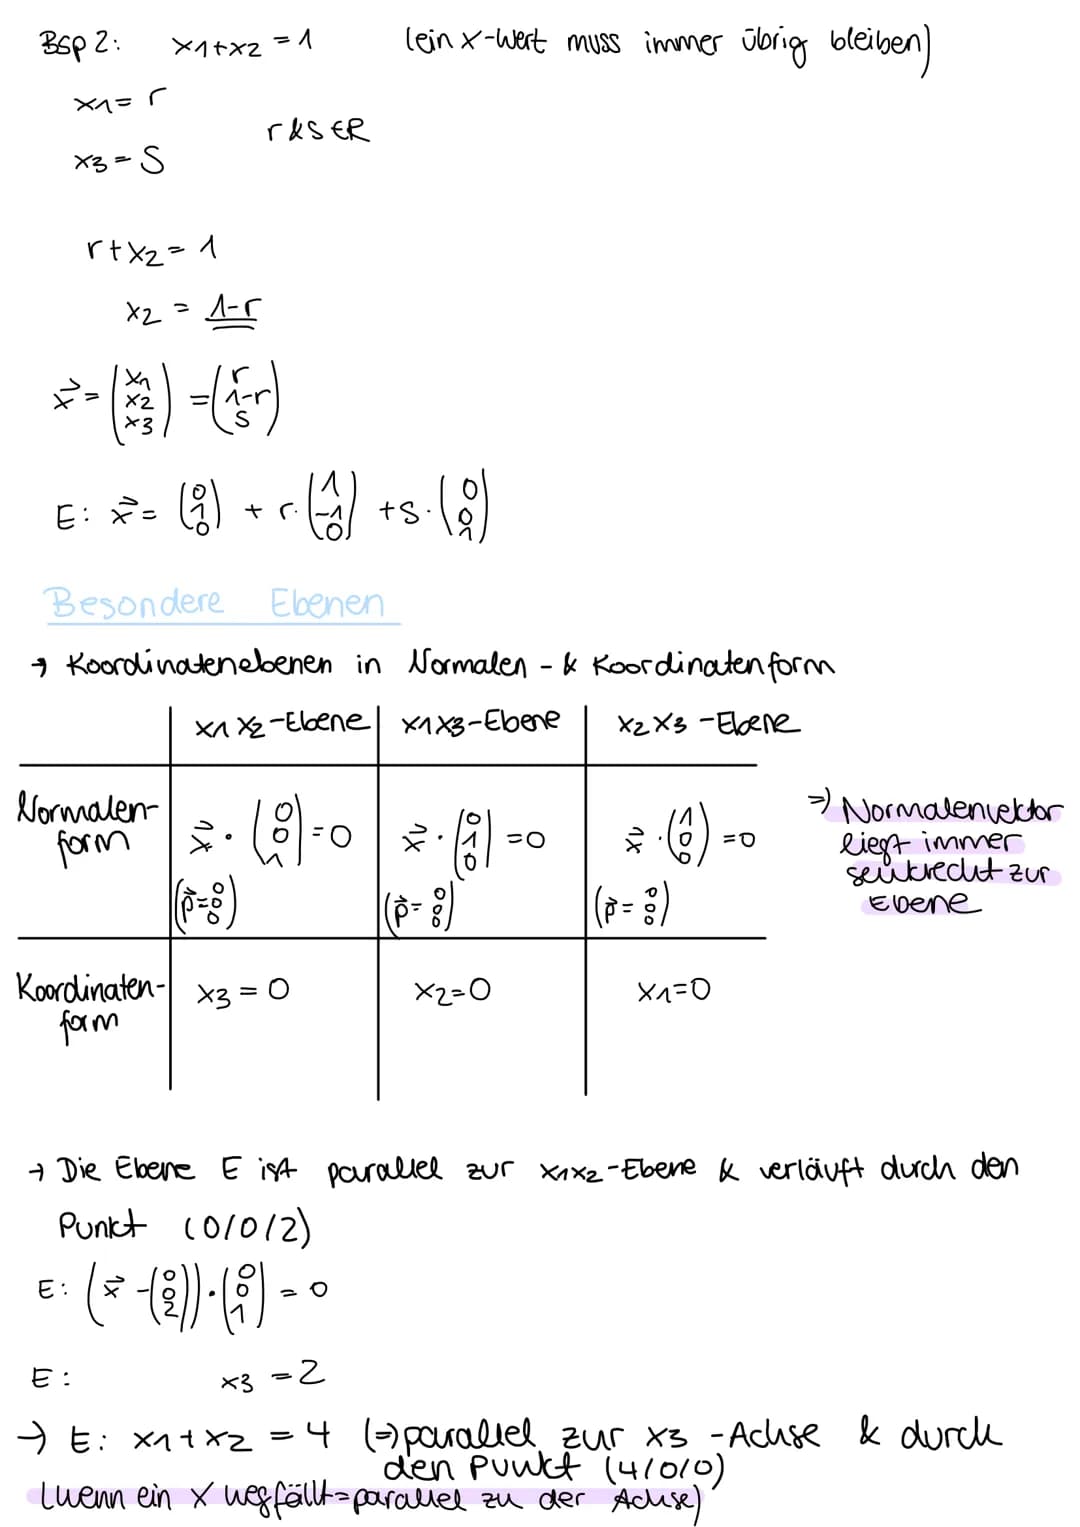 Bsp 2: x1+x2 = 1 (ein x-Wert muss immer übrig bleiben)
x1 = r
r & s ∈ R
x3 = s
r+x2 = 1
x2 = 1-r
x⃗ = (x1 x2 x3) = (r 1-r s)
E: x⃗ = (0 1 0) + r · (1 -1 0) + s · (0 0 1)
Besondere Ebenen
→ Koordinatenebenen in Normalen - & Koordinatenform
x1 x2-Ebene x1x3-Ebene x2x3 -Ebene
Normalen-
form
x⃗ · (0 0 1) = 0 x⃗ · (0 1 0) = 0 x⃗ · (1 0 0) = 0
(p⃗ = 0 0 0) (p⃗ = 0 0 0) (p⃗ = 0 0 0)
⇒ Normalenvektor
liegt immer
senkrecht zur
Ebene
Koordinaten-
form
x3 = 0 x2=0 x1=0
→ Die Ebene E ist parallel zur x1x2-Ebene & verläuft durch den
Punkt (0/0/2)
E: (x⃗ - (0 0 2)) · (0 0 1) = 0
E: x3 = 2
→ E: x1+x2 = 4 (⇒ parallel zur x3 -Achse & durch
den Punkt (4/0/0)
(wenn ein x wegfällt = parallel zu der Achse)